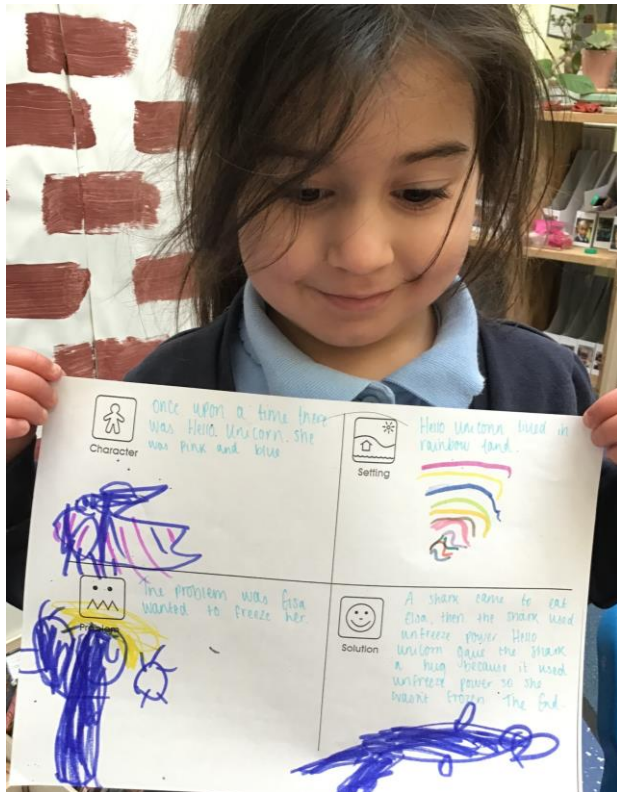 Once upon a time there
was Hello Unicorn. She
was pink and blue
Character
Hello Unicorn lived in
rainbow land.
Setting
The problem was Elsa
wanted to freeze her.
Problem
A shark came to eat
Elsa, then the shark used
unfreeze power. Hello
Unicorn gave the shark
a hug because it used
unfreeze power so she
wasn't frozen. The End.
Solution